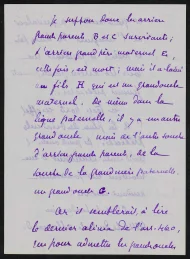 Je suppose donc les arrière
grands parents B et C survivants ;
l'arrière grand père maternel E
cette fois, est mort ; mais il a laissé
un fils H qui est un grand oncle
maternel. De même dans la
ligne paternelle, il y a un autre
grand oncle mais de l'autre souche
d'arrière grands parents, de la
souche de la grand mère paternelle,
un grand oncle G.
Or il semblerait, à lire
le dernier alinéa de l'art.
que pour admettre les grands oncles